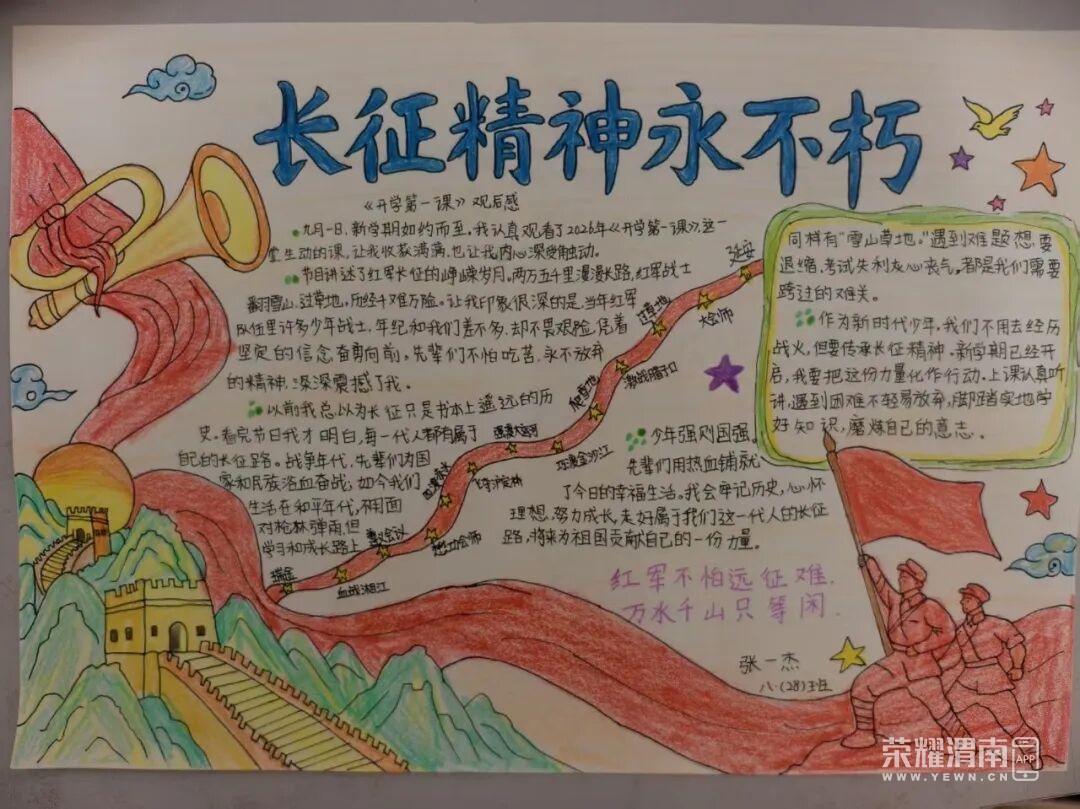 长征精神永不朽
《开学第一课》观后感
九月一日,新学期如约而至,我认真观看了2026年《开学第一课》,这一
堂生动的课,让我收获满满,也让我内心深受触动。
节目讲述了红军长征的峥嵘岁月,两万五千里漫漫长路,红军战士
翻雪山,过草地,历经千难万险。让我印象很深的是,当年红军
队伍里许多少年战士,年纪和我们差不多,却不畏艰险,凭着
坚定的信念奋勇向前。先辈们不怕吃苦,永不放弃
的精神,深深震撼了我。
以前我总以为长征只是书本上遥远的历
史。看完节目我才明白,每一代人都有属于
自己的长征路。战争年代,先辈们为国
家和民族浴血奋战,如今我们
生活在和平年代,不用面
对枪林弹雨,但
学习和成长路上
同样有“雪山草地。”遇到难题想要
退缩,考试失利灰心丧气。都是我们需要
跨过的难关。
作为新时代少年,我们不用去经历
战火,但要传承长征精神。新学期已经开
启,我要把这份力量化作行动。上课认真听
讲,遇到困难不轻易放弃,脚踏实地学
好知识,磨炼自己的意志。
少年强则国强。
先辈们用热血铺就
了今日的幸福生活。我会牢记历史,心怀
理想,努力成长,走好属于我们这一代人的长征
路,将来为祖国贡献自己的一份力量。
瑞金
血战湘江
遵义会议
懋功会师
四渡赤水
飞夺泸定桥
强渡大渡河
巧渡金沙江
爬雪山
激战腊子口
过草地
大会师
延安
红军不怕远征难,
万水千山只等闲.
张一杰
八·(28)班
荣耀渭南
APP
WWW.YEWN.CN